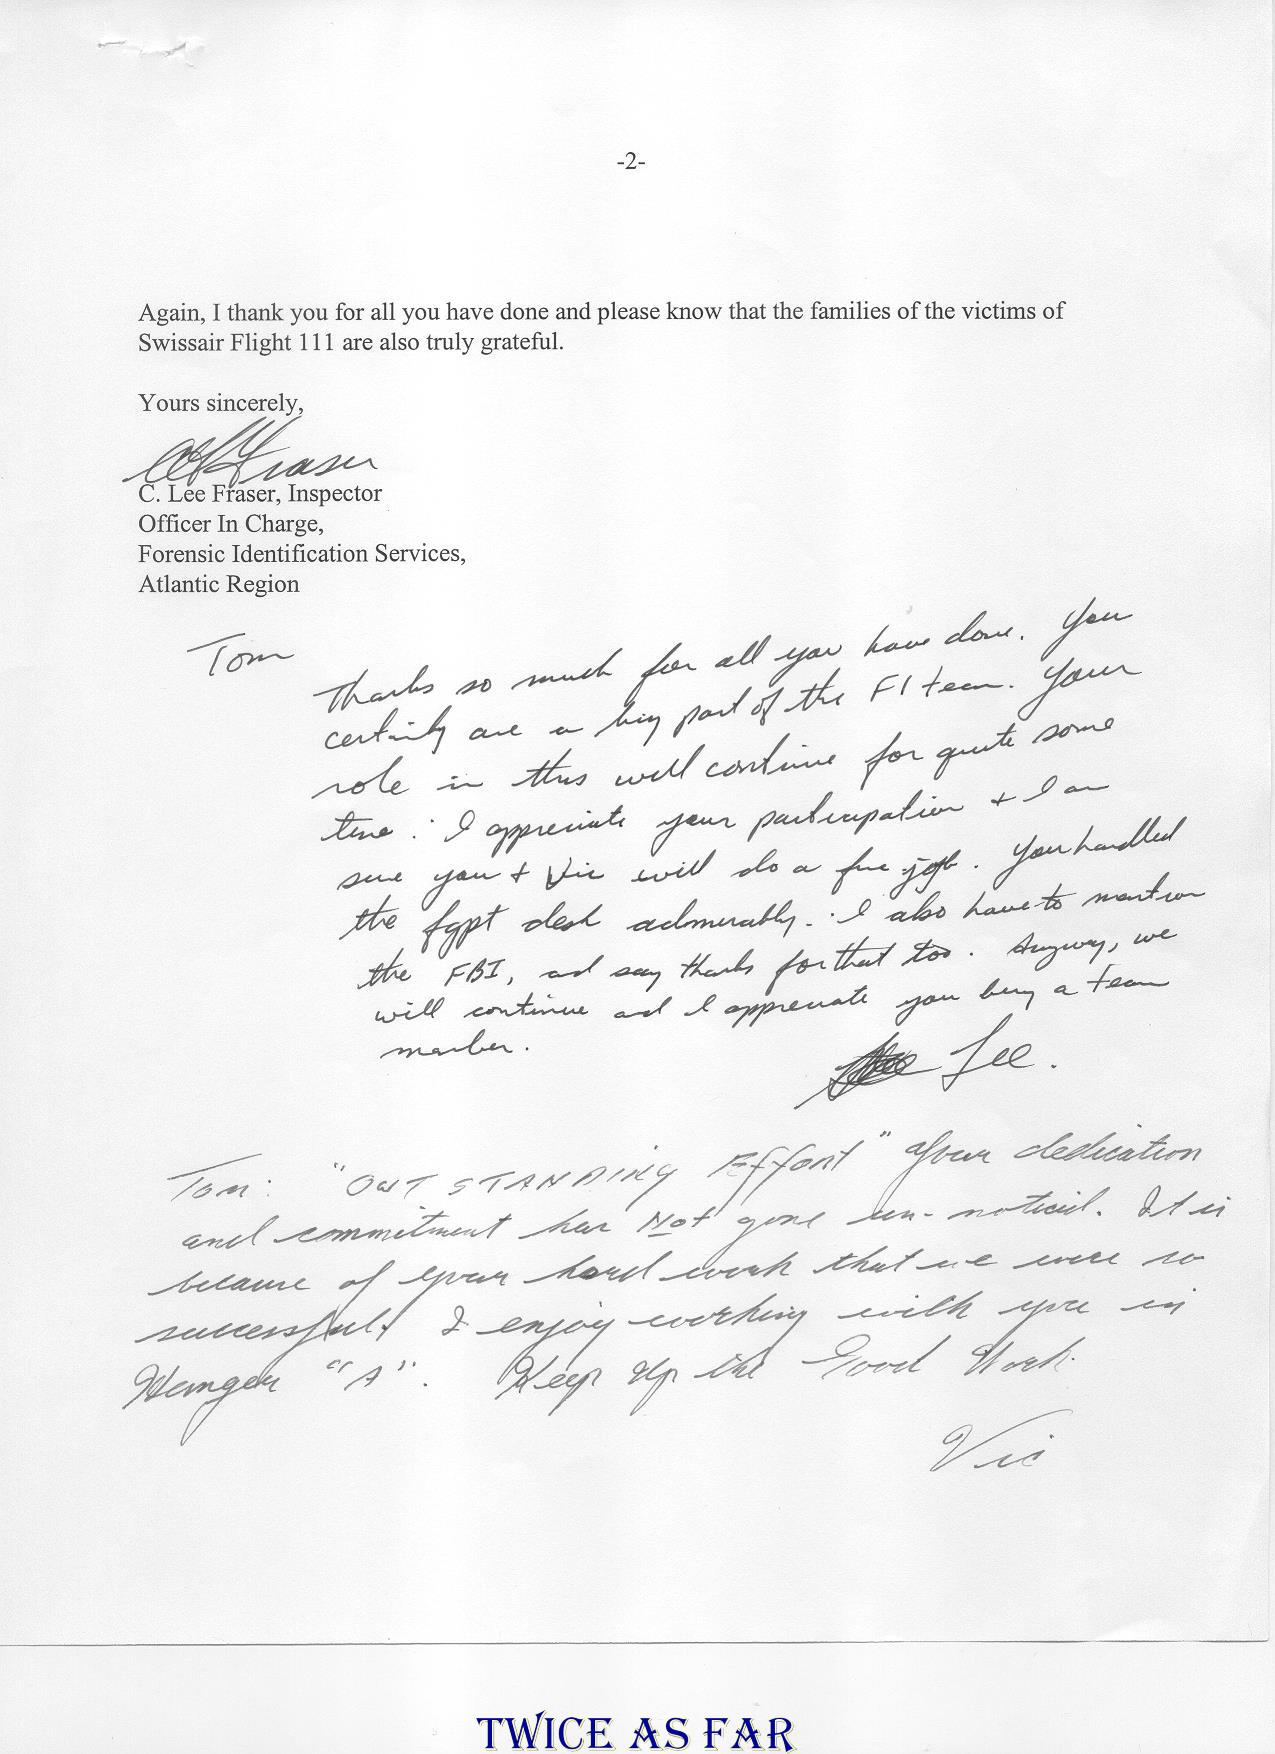 -2-
Again, I thank you for all you have done and please know that the families of the victims of
Swissair Flight 111 are also truly grateful.
Yours sincerely,
C Lee Fraser
C. Lee Fraser, Inspector
Officer In Charge,
Forensic Identification Services,
Atlantic Region
Tom
Thanks so much for all you have done. You
certainly are a big part of the FI team. Your
role in this will continue for quite some
time. I appreciate your participation + I am
sure you + Vic will do a fine job. You handled
the fgpt desk admirably. I also have to mention
the FBI, and say thanks for that too. Anyway, we
will continue and I appreciate you being a team
member.
Lee.
Tom: "OUTSTANDING Effort" your dedication
and commitment has Not gone un-noticed. It is
because of your hard work that we were so
successful. I enjoy working with you in
Hanger "A". Keep Up the Good Work.
Vic
TWICE AS FAR